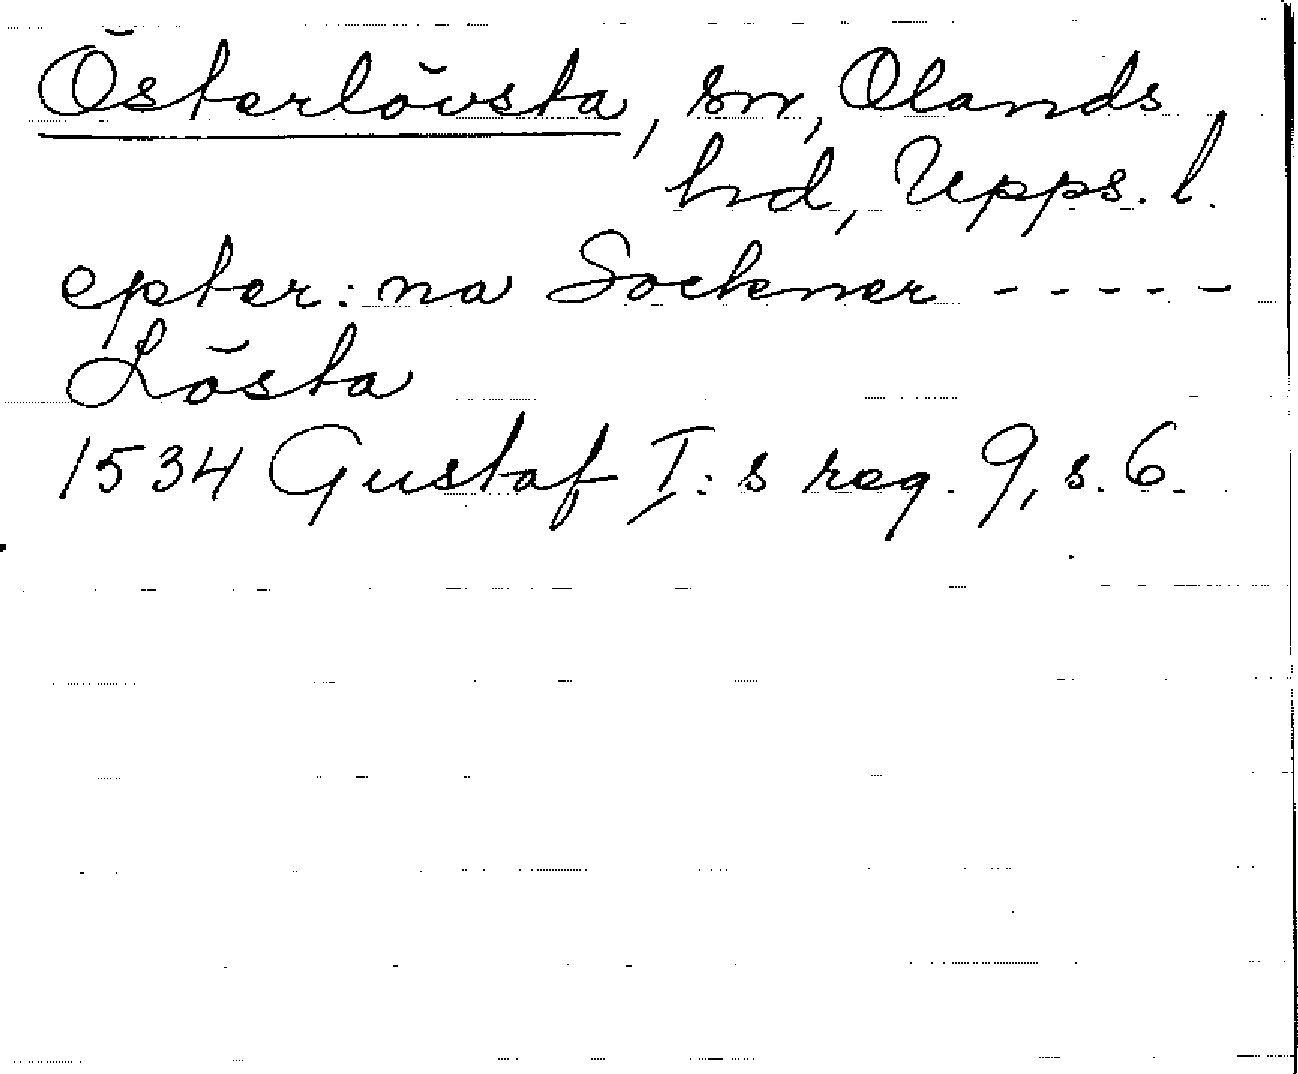 Österlövsta, sn, Olands
hd, Upps. l.
epter: na Sockner - - - - -
Lösta
1534 Gustaf I: s reg. 9, s. 6.